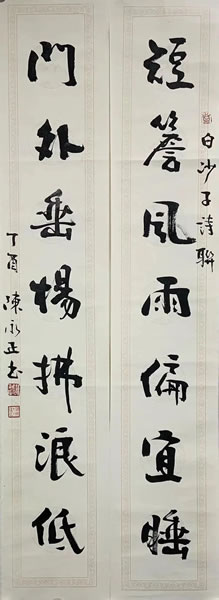 白沙子詩聯
短簷風雨偏宜睡
門外垂楊拂浪低
丁酉陳永正書